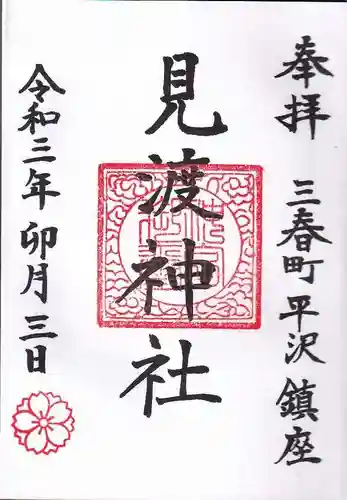 奉拝 三春町平沢鎮座
見渡神社
令和三年卯月三日